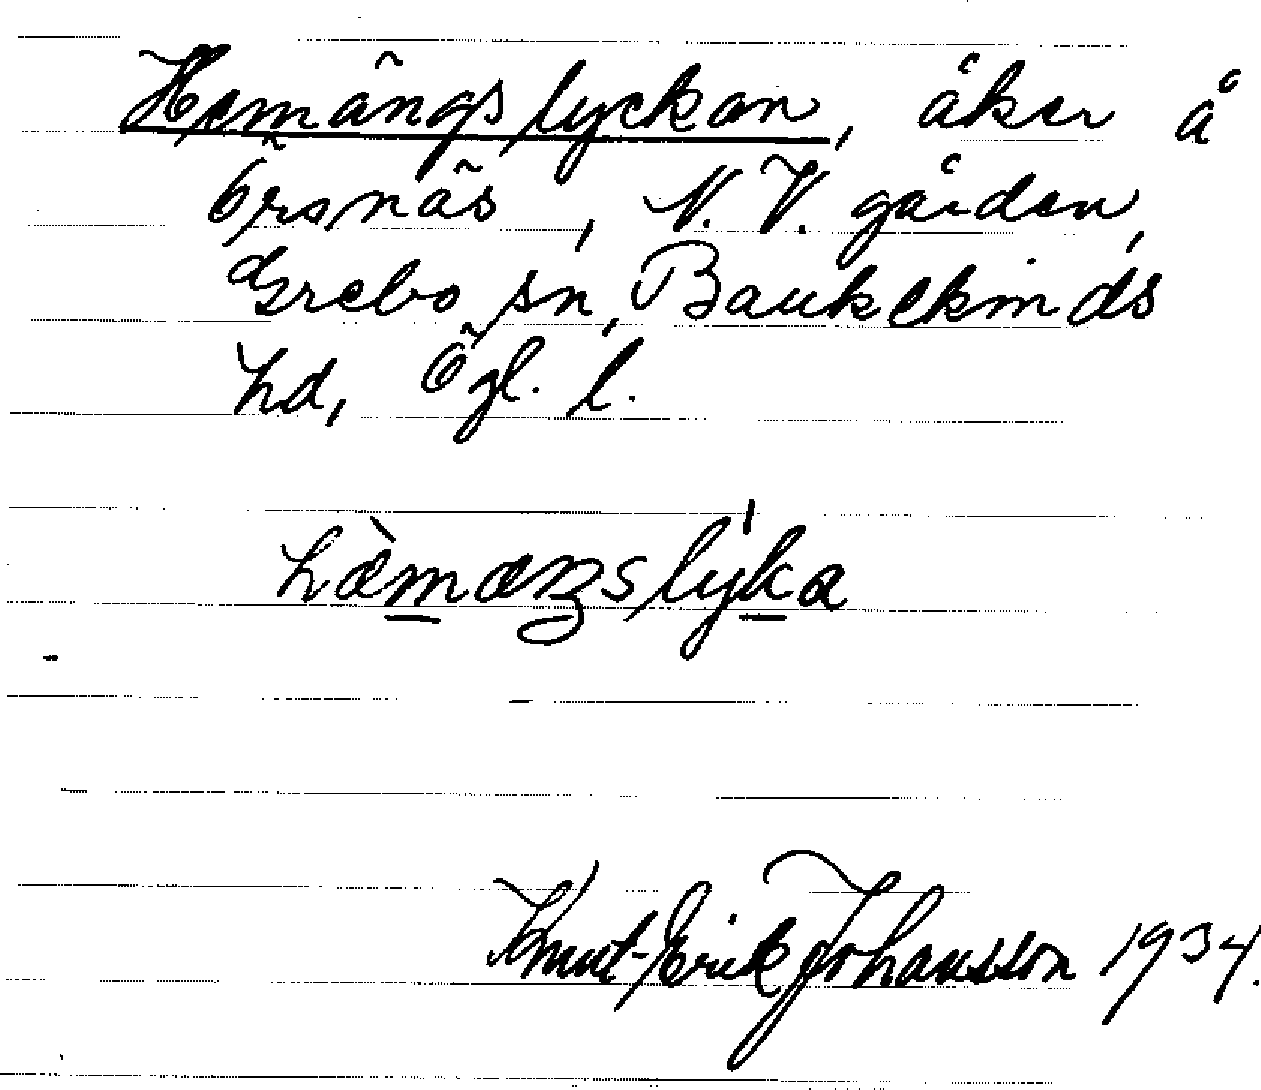 Hemängslyckan, åker å
Örsnäs, N. V. gården,
Grebo sn, Bankekinds
hd, Ögl. l.
hæ̀mæŋslýka
Knut-Erik Johansson 1934.